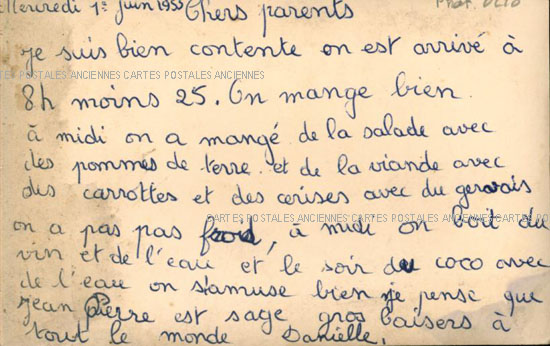 Mercredi 1er juin 1955 Chers parents
je suis bien contente on est arrivé à
CARTES POSTALES ANCIENNES CARTES POSTALES ANCIENNES
8h moins 25. On mange bien.
à midi on a mangé de la salade avec
des pommes de terre et de la viande avec
des carrottes et des cerises avec du gervais
CARTES POSTALES ANCIENNES CARTES POSTALES ANCIENNES CARTES POSTALES ANCIENNES
on a pas pas froid, à midi on boit du
vin et de l'eau et le soir du coco avec
de l'eau on s'amuse bien je pense que
Jean Pierre est sage gros baisers à
tout le monde Danielle.